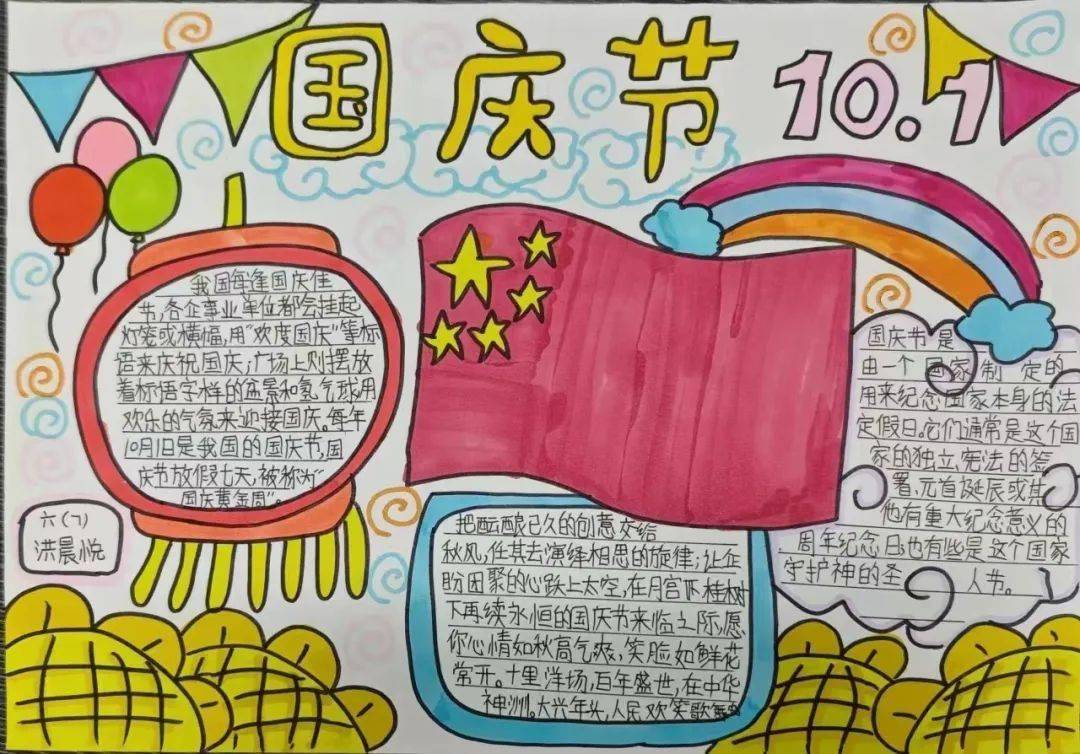 国庆节 10.1
我国每逢国庆佳
节,各企事业单位都会挂起
灯笼或横幅,用“欢度国庆”等标
语来庆祝国庆;广场上则摆放
着标语字样的盆景和氢气球,用
欢乐的气氛来迎接国庆。每年
10月1日是我国的国庆节,国
庆节放假七天,被称为“
国庆黄金周”。
六(7)
洪晨悦
把酝酿已久的创意交给
秋风,任其去演绎相思的旋律;让企
盼团聚的心跃上太空,在月宫下桂树
下再续永恒的国庆节来临之际,愿
你心情如秋高气爽,笑脸如鲜花
常开。十里洋场,百年盛世,在中华
神洲。大兴年头,人民欢笑歌舞
国庆节是
由一个国家制定的
用来纪念国家本身的法
定假日。它们通常是这个国
家的独立、宪法的签
署、元首诞辰或其
他有重大纪念意义的
周年纪念日;也有些是这个国家
守护神的圣人节。